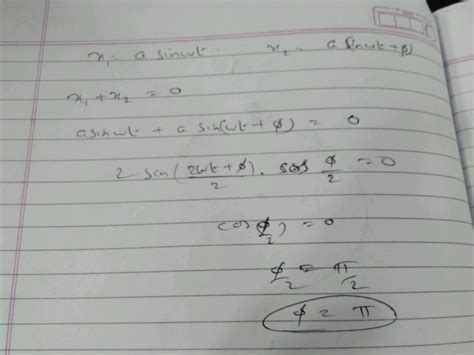 x₁ = a sinωt . x₂ = a sin(ωt + ϕ)
x₁ + x₂ = 0
a sinωt + a sin(ωt + ϕ) = 0
2 sin(2ωt + ϕ)/2 . cos ϕ/2 = 0
cos(ϕ/2) = 0
ϕ/2 = π/2
ϕ = π